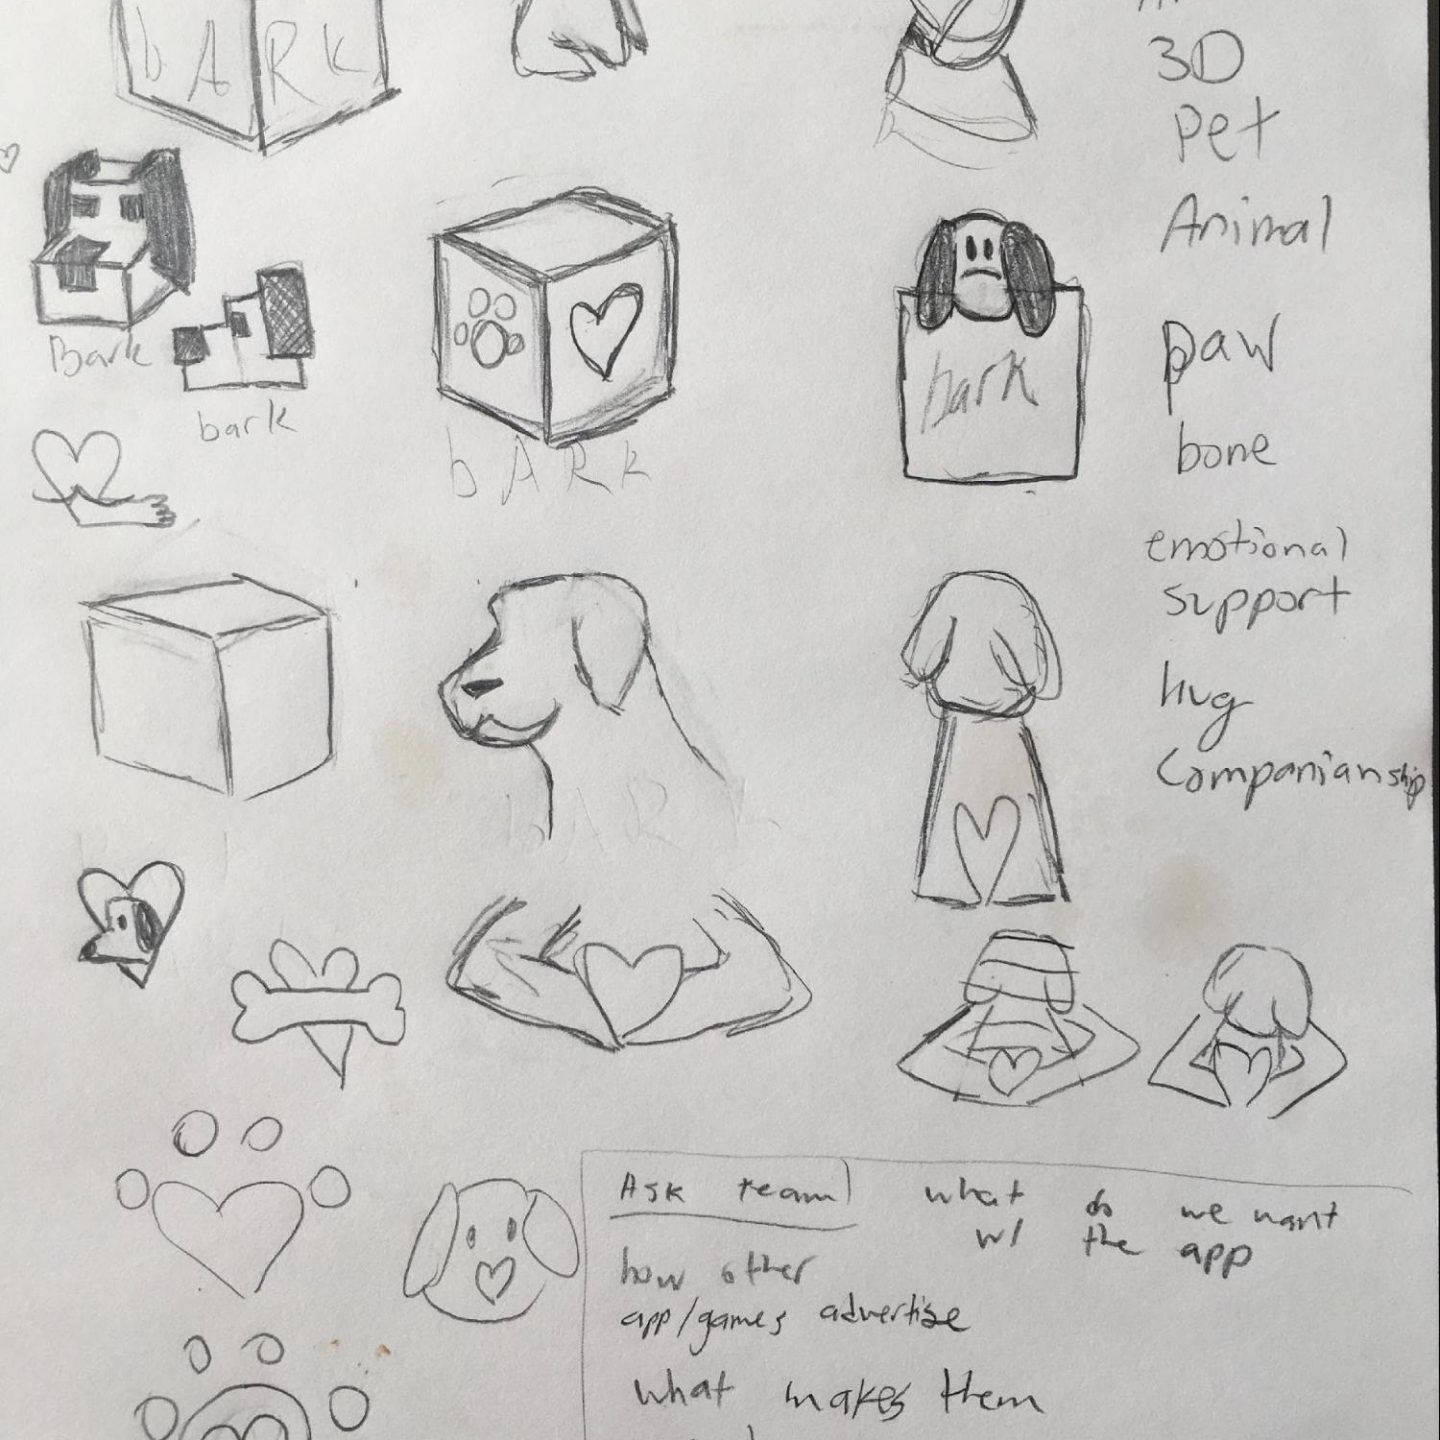 bARK
3D
pet
Animal
Bark
bark
bARK
bark
paw
bone
emotional
support
hug
Companianship
bARK
Ask team
what do we want
w/ the app
how other
app/games advertise
what makes them